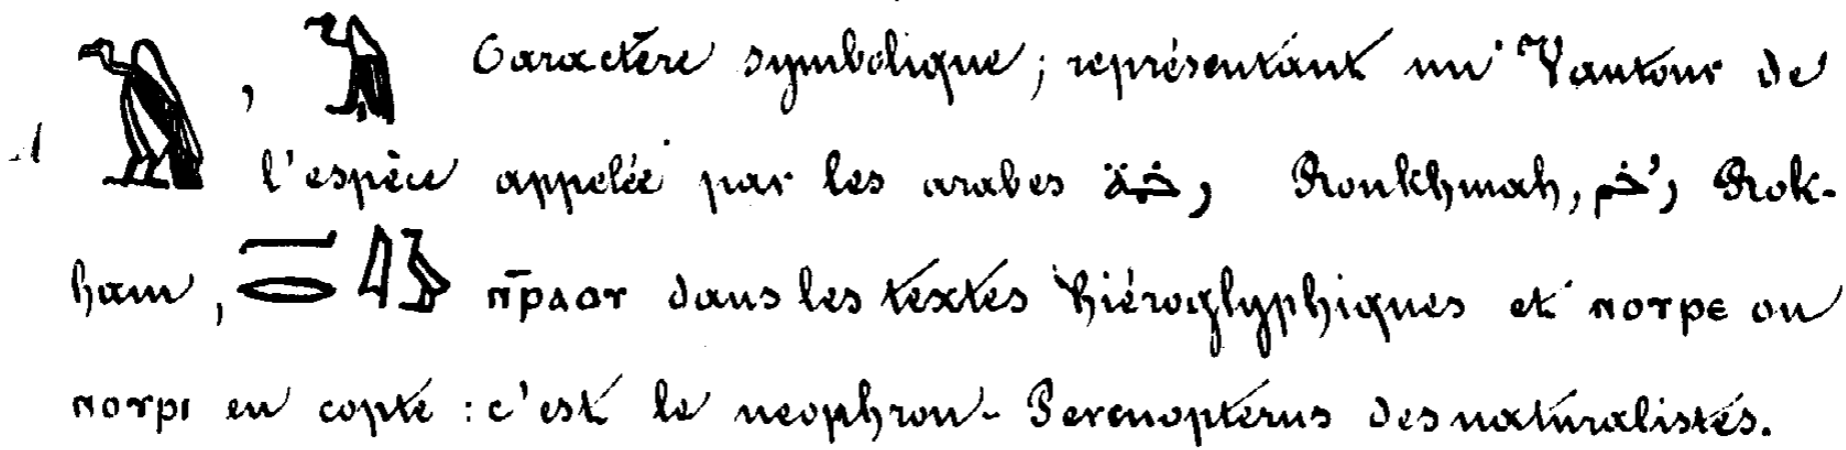 , Caractère symbolique; représentant un Vautour de
l'espèce appelée par les arabes رخمة, Roukhmah, رخم, Rok-
ham, ⲛ̄ⲣⲁⲟⲩ dans les textes hiéroglyphiques et ⲛⲟⲩⲣⲉ ou
ⲛⲟⲩⲣⲓ en copte : c'est le neophron-Percnopterus des naturalistes.